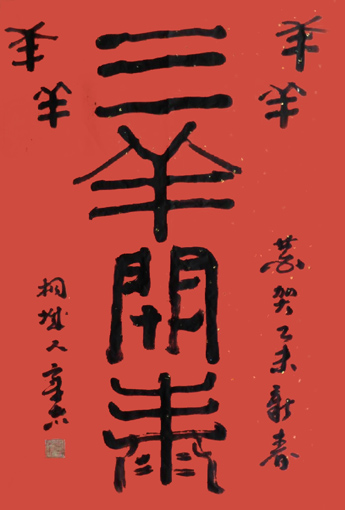 羊羊
恭贺乙未新春
三羊開泰
羊羊
桐城人